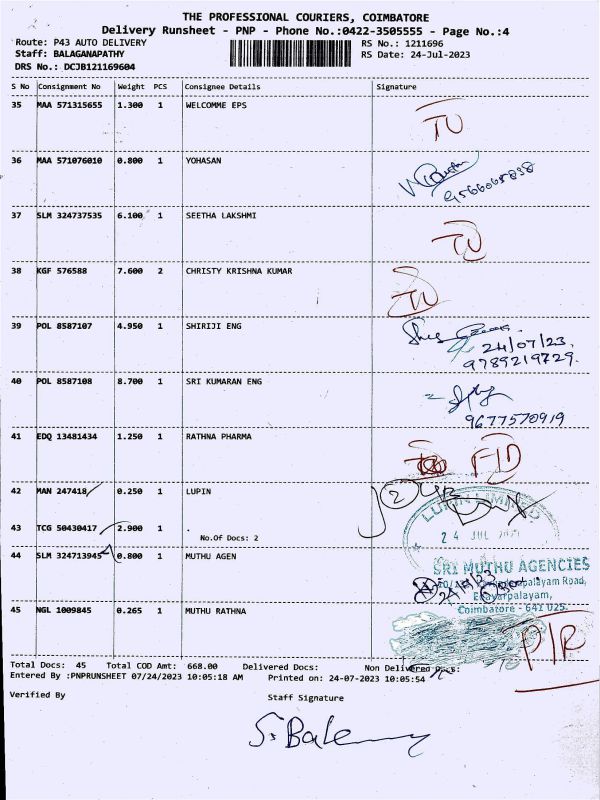 THE PROFESSIONAL COURIERS, COIMBATORE
Delivery Runsheet - PNP - Phone No.:0422-3505555 - Page No.:4
Route: P43 AUTO DELIVERY
RS No.: 1211696
Staff: BALAGANAPATHY
RS Date: 24-Jul-2023
DRS No.: DCJB121169604
S No Consignment No Weight PCS Consignee Details Signature
35 MAA 571315655 1.300 1 WELCOMME EPS
TU
36 MAA 571076010 0.800 1 YOHASAN
9566065838
37 SLM 324737535 6.100 1 SEETHA LAKSHMI
TU
38 KGF 576588 7.600 2 CHRISTY KRISHNA KUMAR
TU
39 POL 8587107 4.950 1 SHIRIJI ENG
24/07/23
9789219729
40 POL 8587108 8.700 1 SRI KUMARAN ENG
9677570919
41 EDQ 13481434 1.250 1 RATHNA PHARMA
42 MAN 247418 0.250 1 LUPIN
2
LUPIN LIMITED
43 TCG 50430417 2.900 1 .
No.Of Docs: 2
24 JUL
44 SLM 324713945 0.800 1 MUTHU AGEN
SRI MUTHU AGENCIES
palayam Road,
Coimbatore - 641 025.
45 NGL 1009845 0.265 1 MUTHU RATHNA
P/R
Total Docs: 45 Total COD Amt: 668.00 Delivered Docs: Non Delivered Docs:
Entered By :PNPRUNSHEET 07/24/2023 10:05:18 AM Printed on: 24-07-2023 10:05:54
Verified By
Staff Signature